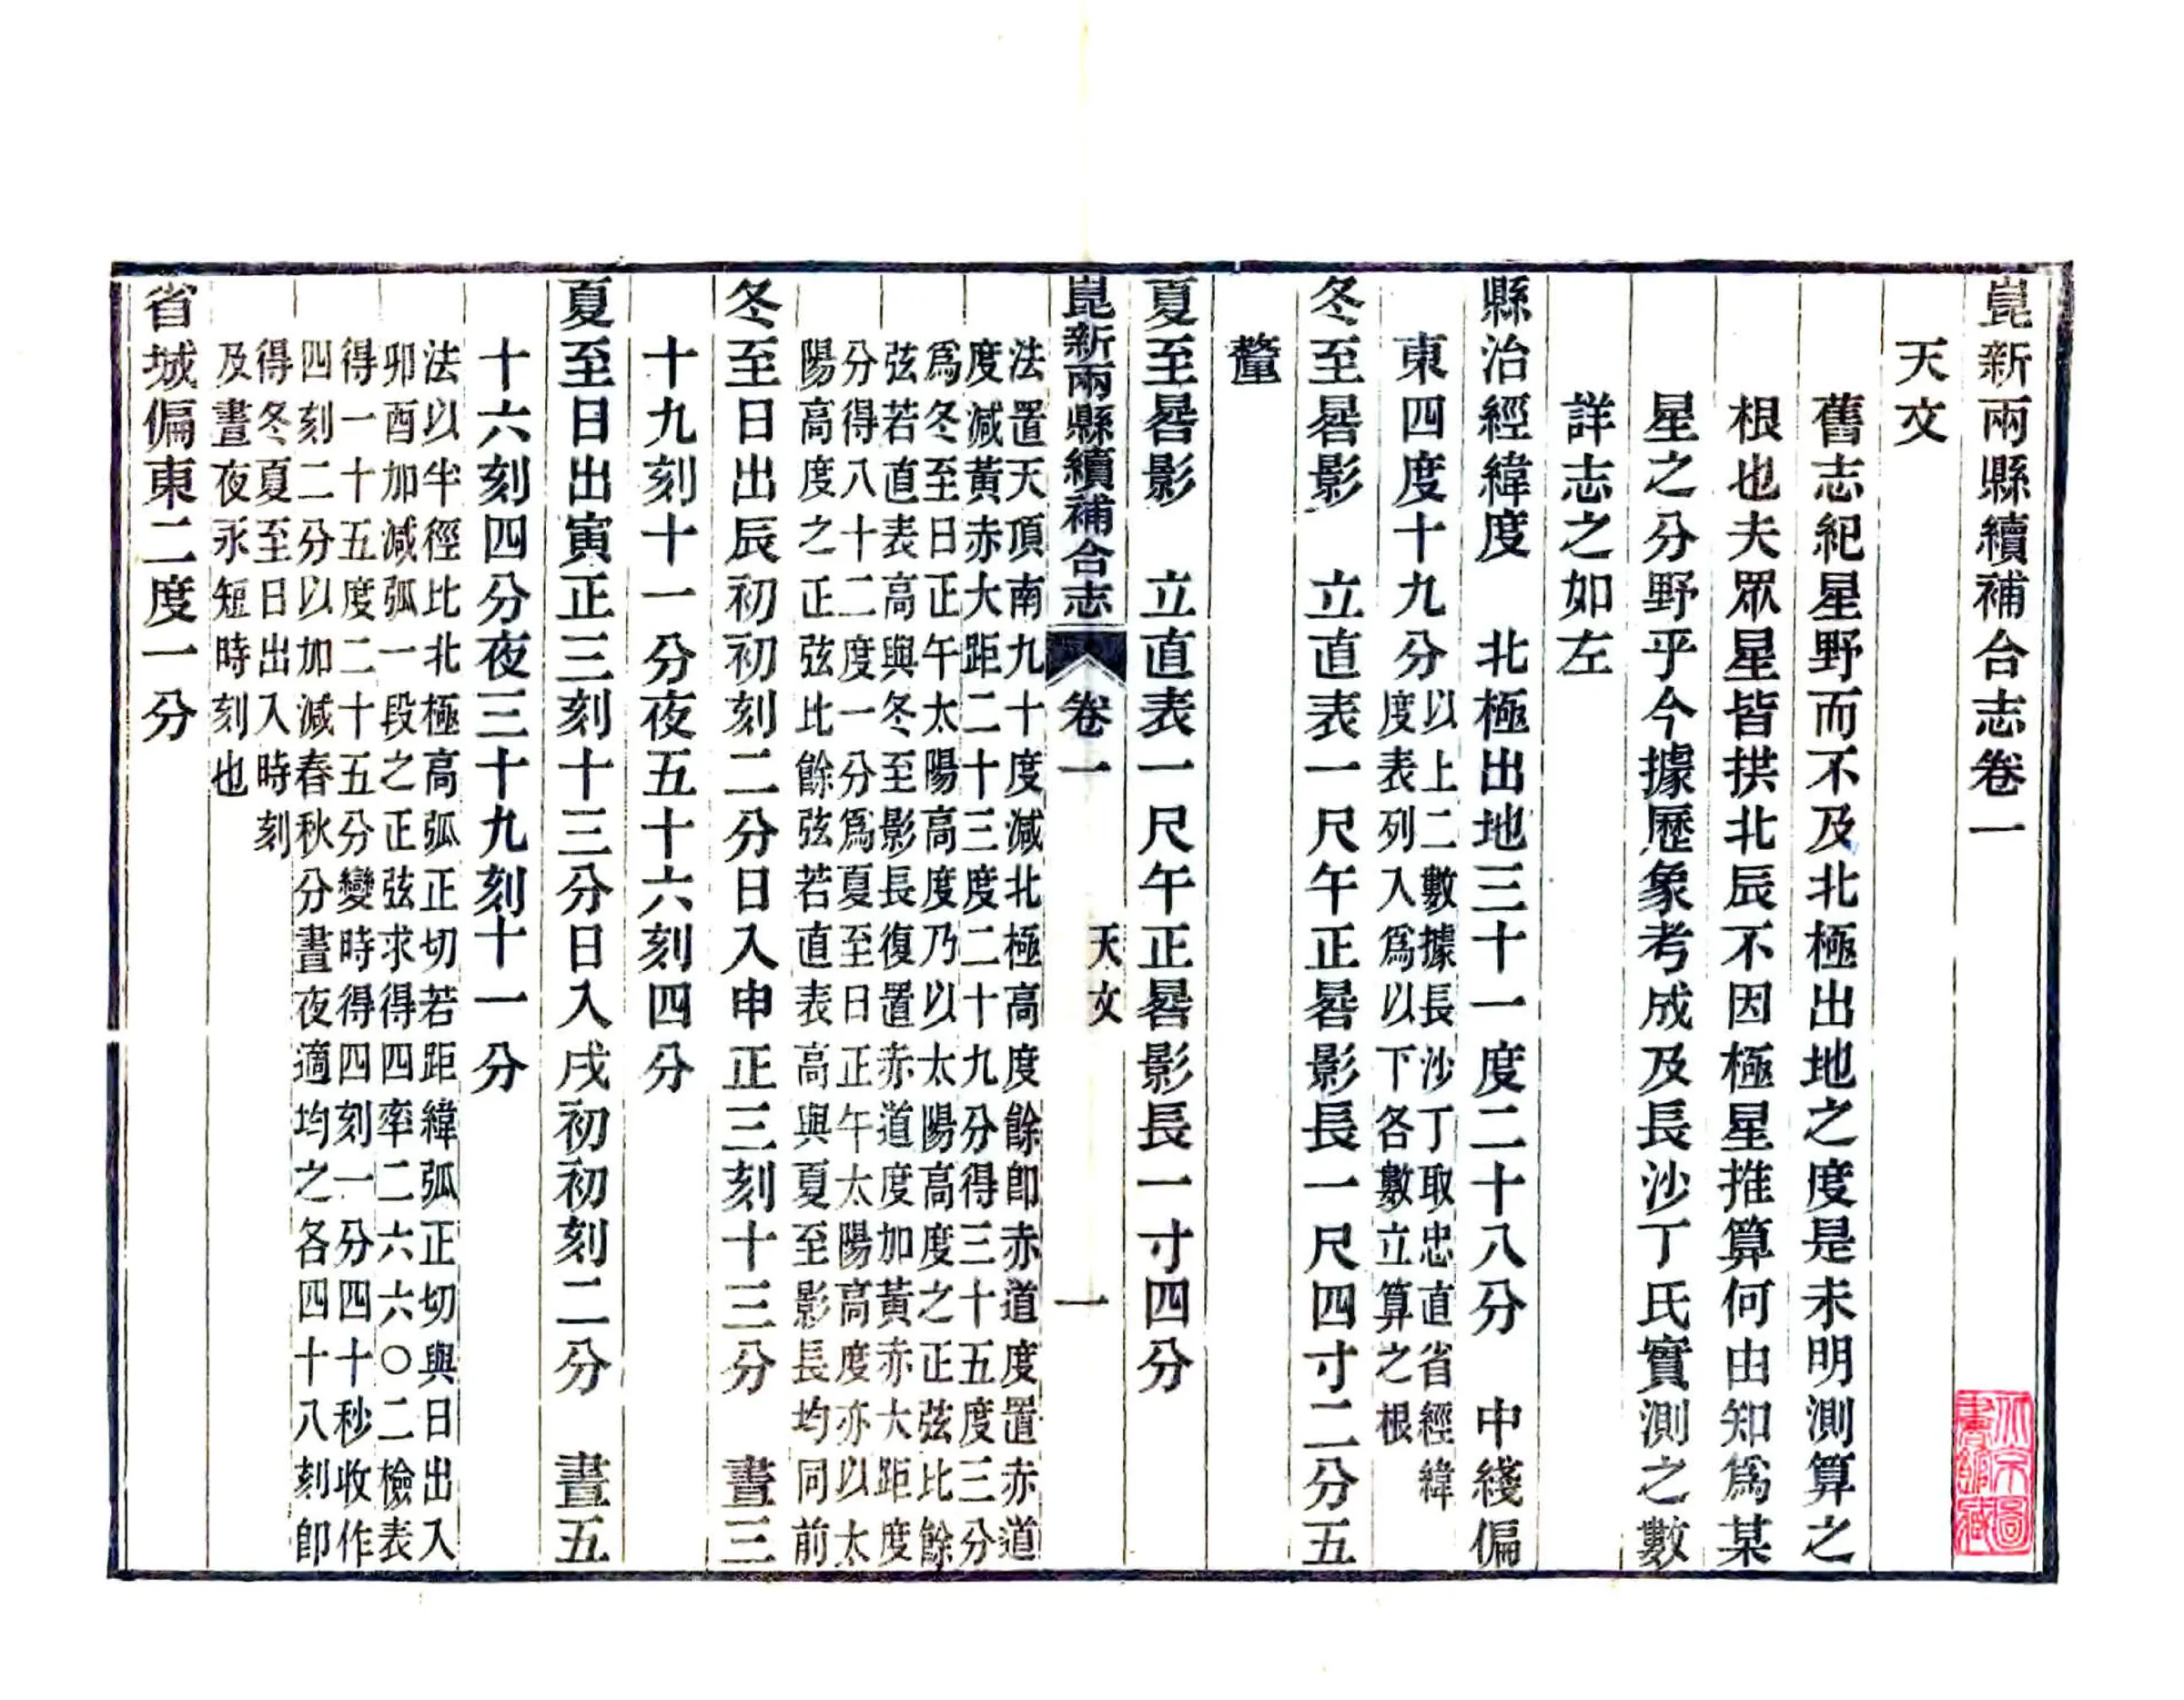 崑新兩縣續補合志卷一
天文
舊志紀星野而不及北極出地之度是未明測算之
根也夫眾星皆拱北辰不因極星推算何由知爲某
星之分野乎今據歷象考成及長沙丁氏實測之數
詳志之如左
縣治經緯度 北極出地三十一度二十八分 中綫偏
東四度十九分
以上二數據長沙丁取忠直省經緯
度表列入爲以下各數立算之根
冬至晷影 立直表一尺午正晷影長一尺四寸二分五
釐
夏至晷影 立直表一尺午正晷影長一寸四分
崑新兩縣續補合志 卷一 天文 一
法置天頂南九十度減北極高度餘卽赤道度置赤道
度減黃赤大距二十三度二十九分得三十五度三分
爲冬至日正午太陽高度乃以太陽高度之正弦比餘
弦若直表高與冬至影長復置赤道度加黃赤大距度
分得八十二度一分爲夏至日正午太陽高度亦以太
陽高度之正弦比餘弦若直表高與夏至影長均同前
冬至日出辰初初刻二分日入申正三刻十三分 晝三
十九刻十一分夜五十六刻四分
夏至日出寅正三刻十三分日入戌初初刻二分 晝五
十六刻四分夜三十九刻十一分
法以半徑比北極高弧正切若距緯弧正切與日出入
卯酉加減弧一段之正弦求得四率二六六〇二檢表
得一十五度二十五分變時得四刻一分四十秒收作
四刻二分以加減春秋分晝夜適均之各四十八刻卽
得冬夏至日出入時刻
及晝夜永短時刻也
省城偏東二度一分